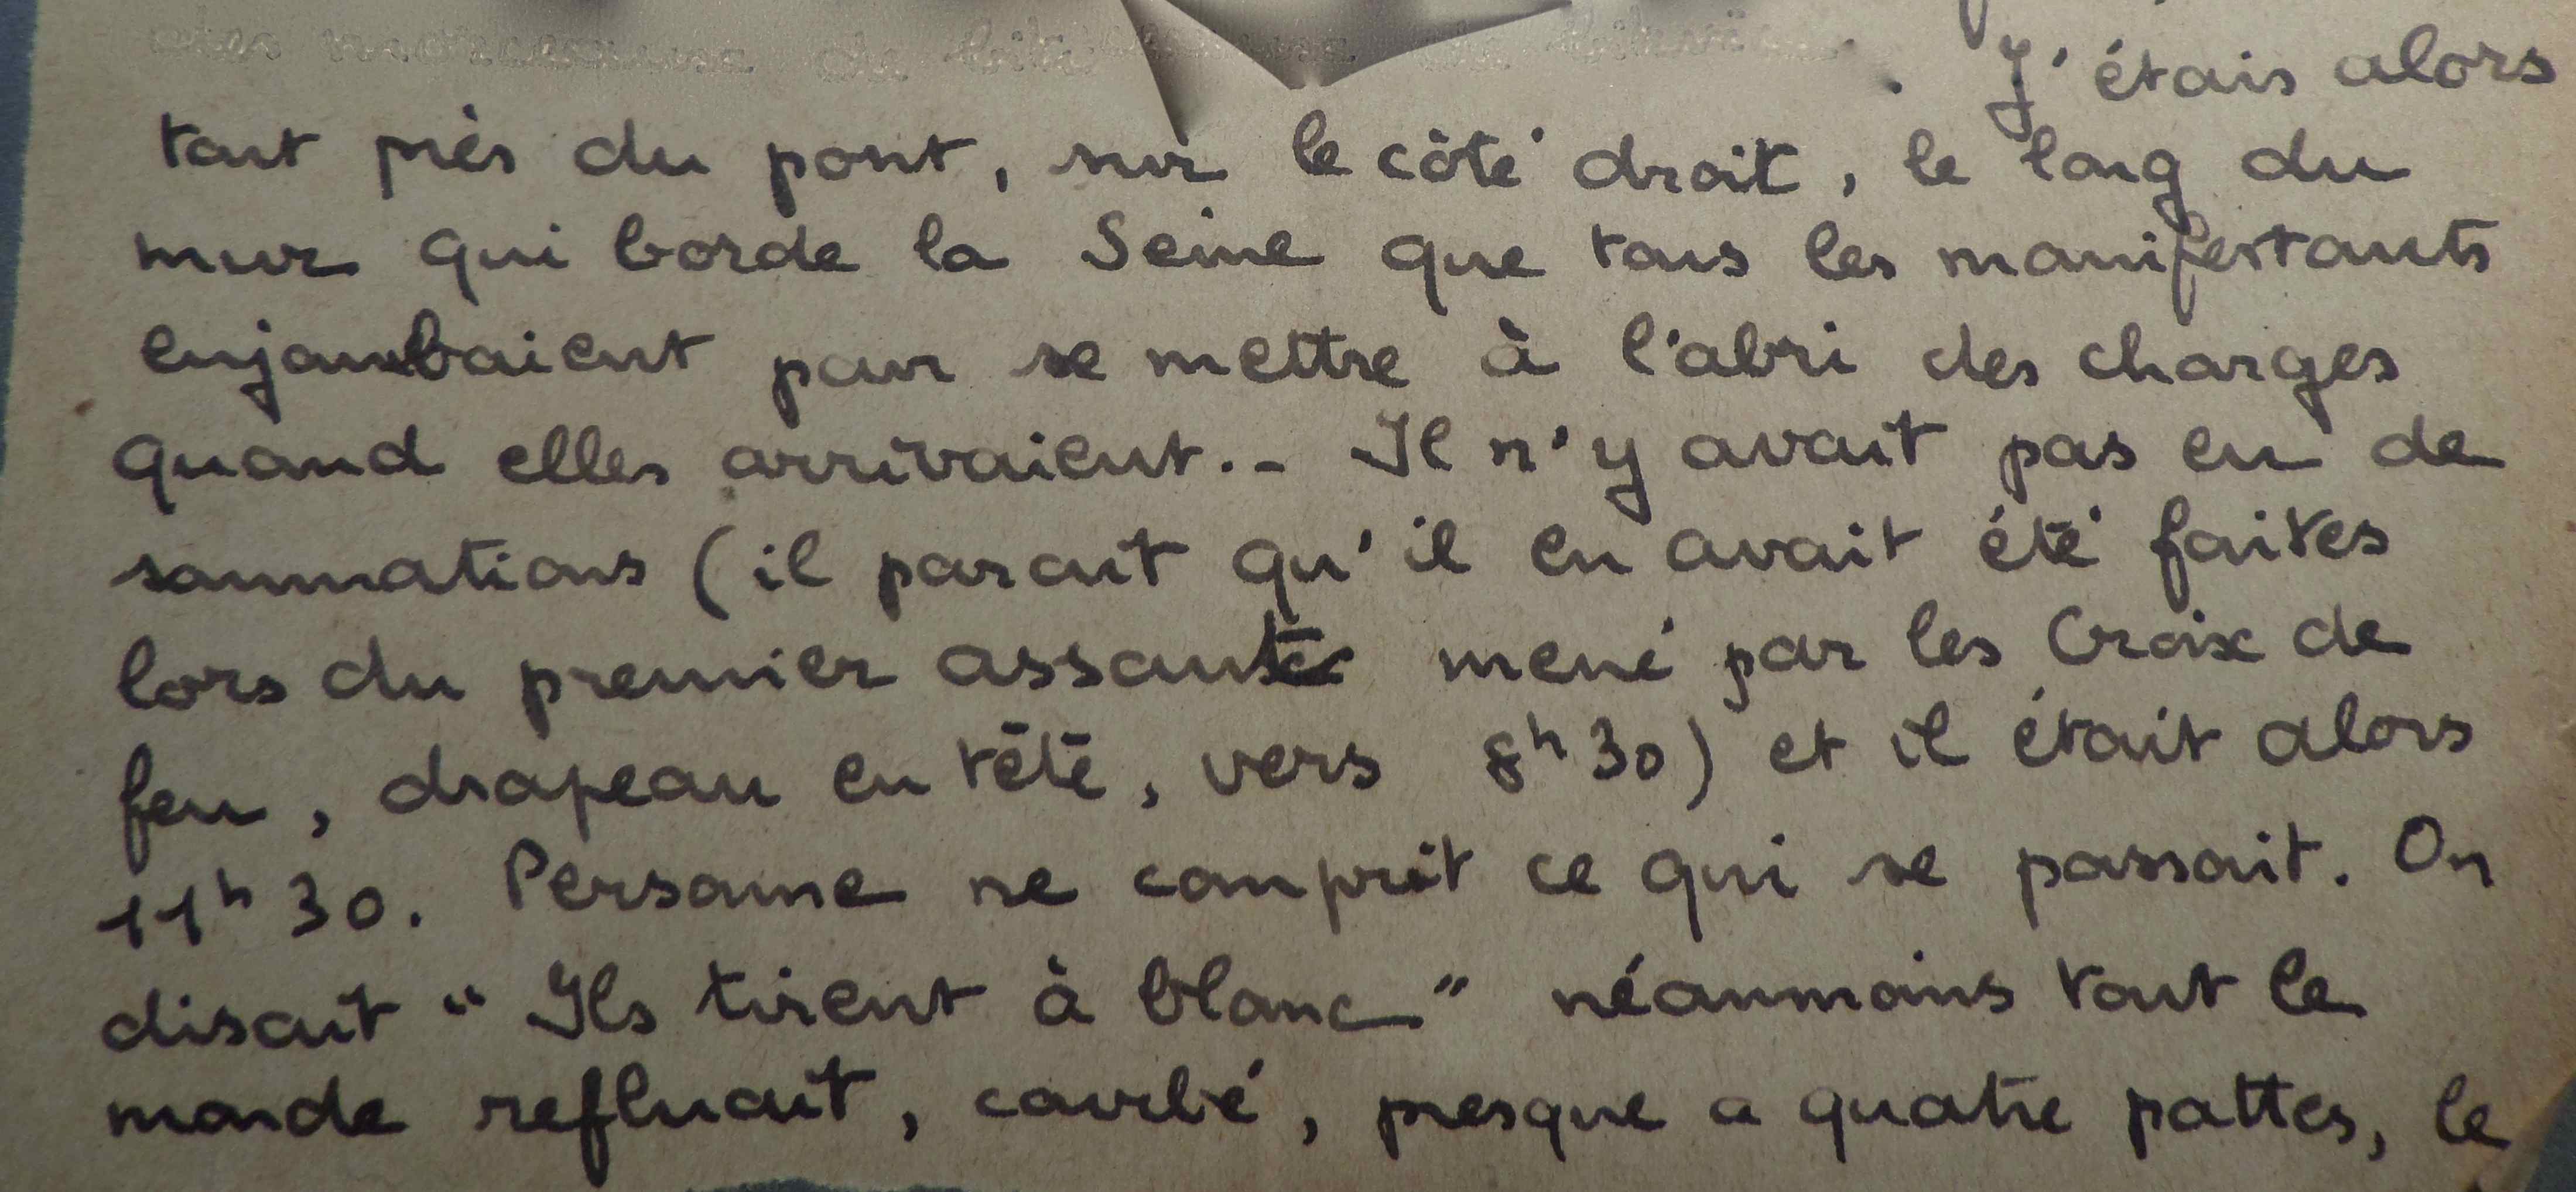 . J'étais alors
tout près du pont, sur le côté droit, le long du
mur qui borde la Seine que tous les manifestants
enjambaient pour se mettre à l'abri des charges
quand elles arrivaient.- Il n'y avait pas eu de
sommations (il parait qu'il en avait été faites
lors du premier assaut mené par les Croix de
feu, drapeau en tête, vers 8h30) et il était alors
11h30. Personne ne comprit ce qui se passait. On
disait " Ils tirent à blanc " néanmoins tout le
monde refluait, courbé, presque a quatre pattes, le